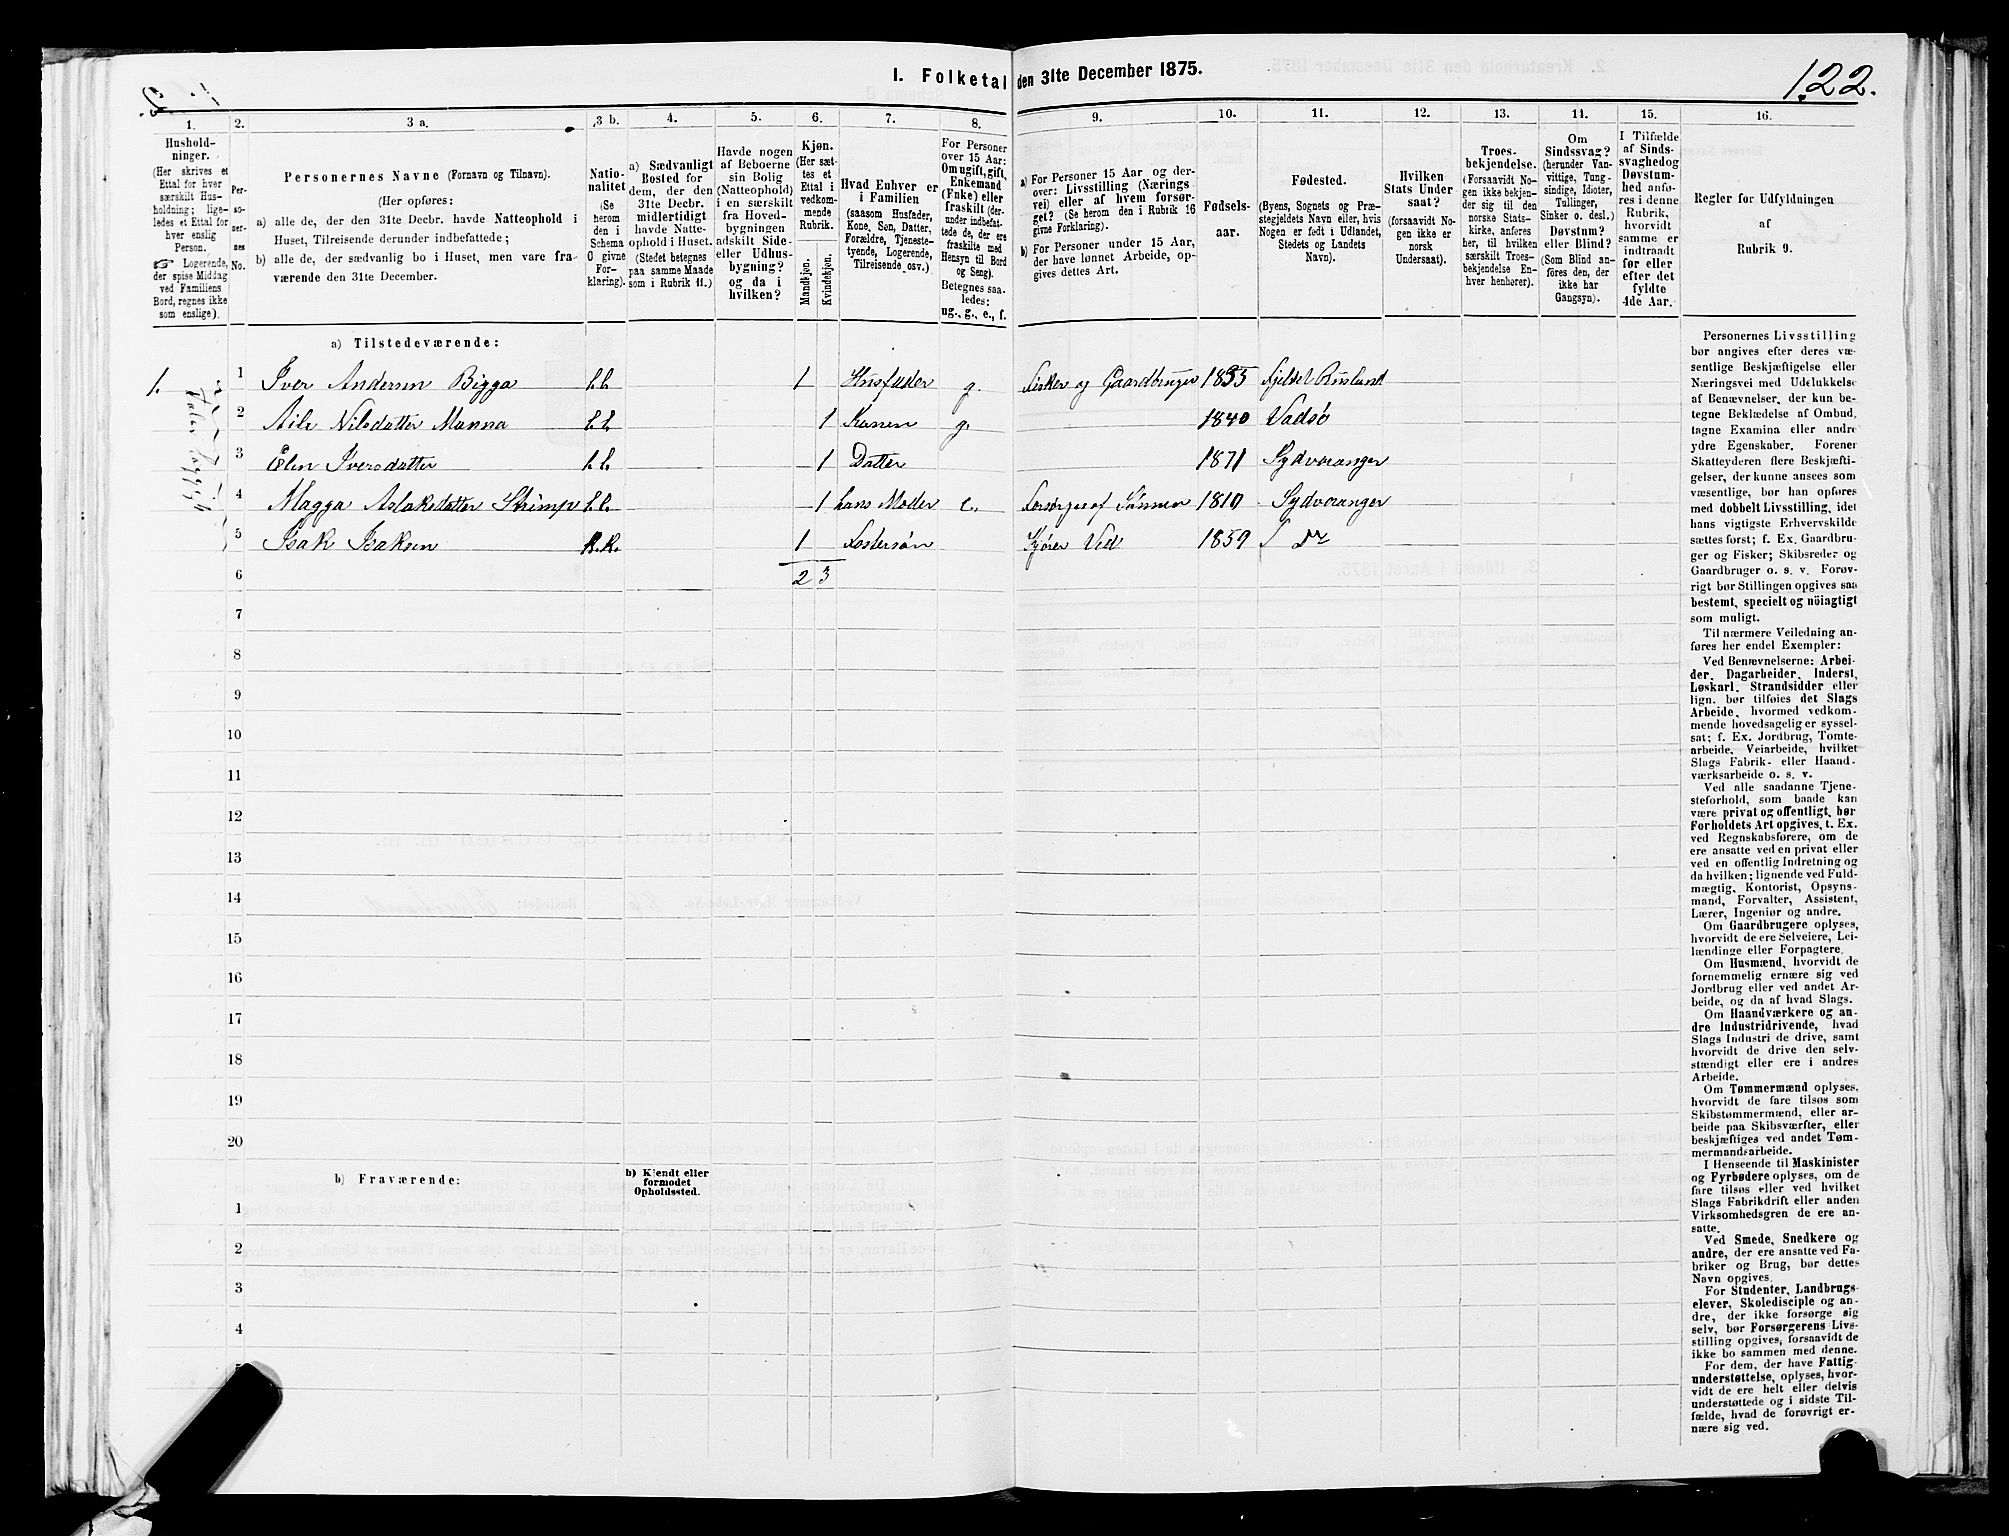 I. Folketal den 31te December 1875.
122.
1. 2. 3 a. 3 b. 4. 5. 6. 7. 8. 9. 10. 11. 12. 13. 14. 15. 16.
Hushold-
ninger.
(Her skrives et
Ettal for hver
særskilt Hus-
holdning; lige-
ledes et Ettal for
hver enslig
Person.
☞ Logerende,
der spise Middag
ved Familiens
Bord, regnes ikke
som enslige).
Per-
so-
ner-
nes
No.
Personernes Navne (Fornavn og Tilnavn).
(Her opføres:
a) alle de, der den 31te Decbr. havde Natteophold i
Huset, Tilreisende derunder indbefattede;
b) alle de, der sædvanlig bo i Huset, men vare fra-
værende den 31te December.
Natio-
nalitet
(Se
herom
den i
Schema
O givne
For-
klaring).
a) Sædvanligt
Bosted for
dem, der den
31te Decbr.
midlertidigt
havde Natte-
ophold i Huset.
(Stedet betegnes
paa samme Maade
som i Rubrik 11.)
Havde nogen
af Beboerne
sin Bolig
(Natteophold)
i en særskilt
fra Hoved-
bygningen
adskilt Side-
eller Udhus-
bygning?
og da i
hvilken?
Kjøn.
(Her sæt-
tes et
Ettal i
vedkom-
mende
Rubrik.
Mandkjøn.
Kvindekjøn.
Hvad Enhver er
i Familien
(saasom Husfader,
Kone, Søn, Datter,
Forældre, Tjeneste-
tyende, Logerende,
Tilreisende osv.)
For Personer
over 15 Aar:
Om ugift, gift,
Enkemand
(Enke) eller
fraskilt (der-
under indbefat-
tede de, der ere
fraskilte med
Hensyn til Bord
og Seng).
Betegnes saa-
ledes:
ug., g., e., f.
a) For Personer 15 Aar og der-
over: Livsstilling (Nærings
vei) eller af hvem forsør-
get? (Se herom den i Rubrik 16
givne Forklaring).
b) For Personer under 15 Aar,
der have lønnet Arbeide, op-
gives dettes Art.
Fødsels-
aar.
Fødested.
(Byens, Sognets og Præ-
stegjeldets Navn eller, hvis
Nogen er født i Udlandet,
Stedets og Landets
Navn).
Hvilken
Stats Under
saat?
(forsaavidt No-
gen ikke er
norsk
Undersaat).
Troes-
bekjendelse.
(Forsaavidt No-
gen ikke bekjen-
der sig til den
norske Stats-
kirke, anføres
her, til hvilken
særskilt Troes-
bekjendelse En-
hver henhører).
Om
Sindssvag?
(herunder Van-
vittige, Tung-
sindige, Idioter,
Tullinger,
Sinker o. desl.)
Døvstum?
eller Blind?
(Som Blind an-
føres den, der
ikke har
Gangsyn).
I Tilfælde
af Sinds-
svaghedog
Døvstum-
hed anfø-
res i denne
Rubrik,
hvorvidt
samme er
indtraadt
før eller
efter det
fyldte
4de Aar.
Regler for Udfyldningen
af
Rubrik 9.
a) Tilstedeværende:
1. 1 Iver Andersen Bigga l.l. 1 Husfader g. Fisker og Gaardbruger 1835
2 Nilsdatter Manna l.l. 1 Konen g. 1840 Vadsø
3 Elen Iversdatter l.l. 1 Datter 1871 Sydvaranger
4 Magga Aslaksdatter l.l. 1 hans Moder e. Forsørges af Sønnen 1810 Sydvaranger
5 Isak Isaksen k.k. 1 Fostersøn Kjører Ved 1859
6 2 3
7
8
9
10
11
12
13
14
15
16
17
18
19
20
b) Fraværende:
b) Kjendt eller
formodet
Opholdssted.
1
2
3
4
Personernes Livsstilling
bør angives efter deres væ-
sentlige Beskjæftigelse eller
Næringsvei med Udelukkelse
af Benævnelser, der kun be-
tegne Beklædelse af Ombud,
tagne Examina eller andre
ydre Egenskaber. Forener
Skatteyderen flere Beskjæfti-
gelser, der kunne ansees som
væsentlige, bør han opføres
med dobbelt Livsstilling, idet
hans vigtigste Erhvervskilde
sættes først; f. Ex. Gaardbru-
ger og Fisker; Skibsreder og
Gaardbruger o. s. v. Forøv-
rigt bør Stillingen opgives saa
bestemt, specielt og nöiagtigt
som muligt.
Til nærmere Veiledning an-
føres her endel Exempler:
Ved Benævnelserne: Arbei-
der, Dagarbeider, Inderst,
Løskarl, Strandsidder eller
lign. bør tilføies det Slags
Arbeide, hvormed vedkom-
mende hovedsagelig er syssel-
sat; f. Ex. Jordbrug, Tomte-
arbeide, Veiarbeide, hvilket
Slags Fabrik- eller Haand-
værksarbeide o. s. v.
Ved alle saadanne Tjene-
steforhold, som baade kan
være privat og offentligt, bør
Forholdets Art opgives, t. Ex.
ved Regnskabsførere, om de
ere ansatte ved en privat eller
ved en offentlig Indretning og
da hvilken; lignende ved Fuld-
mægtig, Kontorist, Opsyns-
mand, Forvalter, Assistent,
Lærer, Ingeniør og andre.
Om Gaardbrugere oplyses,
hvorvidt de ere Selveiere, Lei-
lændinge eller Forpagtere.
Om Husmænd, hvorvidt de
fornemmelig ernære sig ved
Jordbrug eller ved andet Ar-
beide, og da af hvad Slags.
Om Haandværkere og an-
dre Industridrivende, hvad
Slags Industri de drive, samt
hvorvidt de drive den selv-
stændigt eller ere i andres
Arbeide.
Om Tømmermænd oplyses,
hvorvidt de fare tilsøs som
Skibstømmermænd, eller ar-
beide paa Skibsværfter, eller
beskjæftiges ved andet Tøm-
mermandsarbeide.
I Henseende til Maskinister
og Fyrbødere oplyses, om de
fare tilsøs eller ved hvilket
Slags Fabrikdrift eller anden
Virksomhedsgren de ere an-
satte.
Ved Smede, Snedkere og
andre, der ere ansatte ved Fa-
briker og Brug, bør dettes
Navn opgives.
For Studenter, Landbrugs-
elever, Skoledisciple og an-
dre, der ikke forsørge sig
selv, bør Forsørgerens Livs-
stilling opgives, forsaavidt de
ikke bo sammen med denne.
For dem, der have Fattig-
understøttelse, oplyses, hvor-
vidt de ere helt eller delvis
understøttede og i sidste Til-
fælde, hvad de forøvrigt er-
nære sig ved.